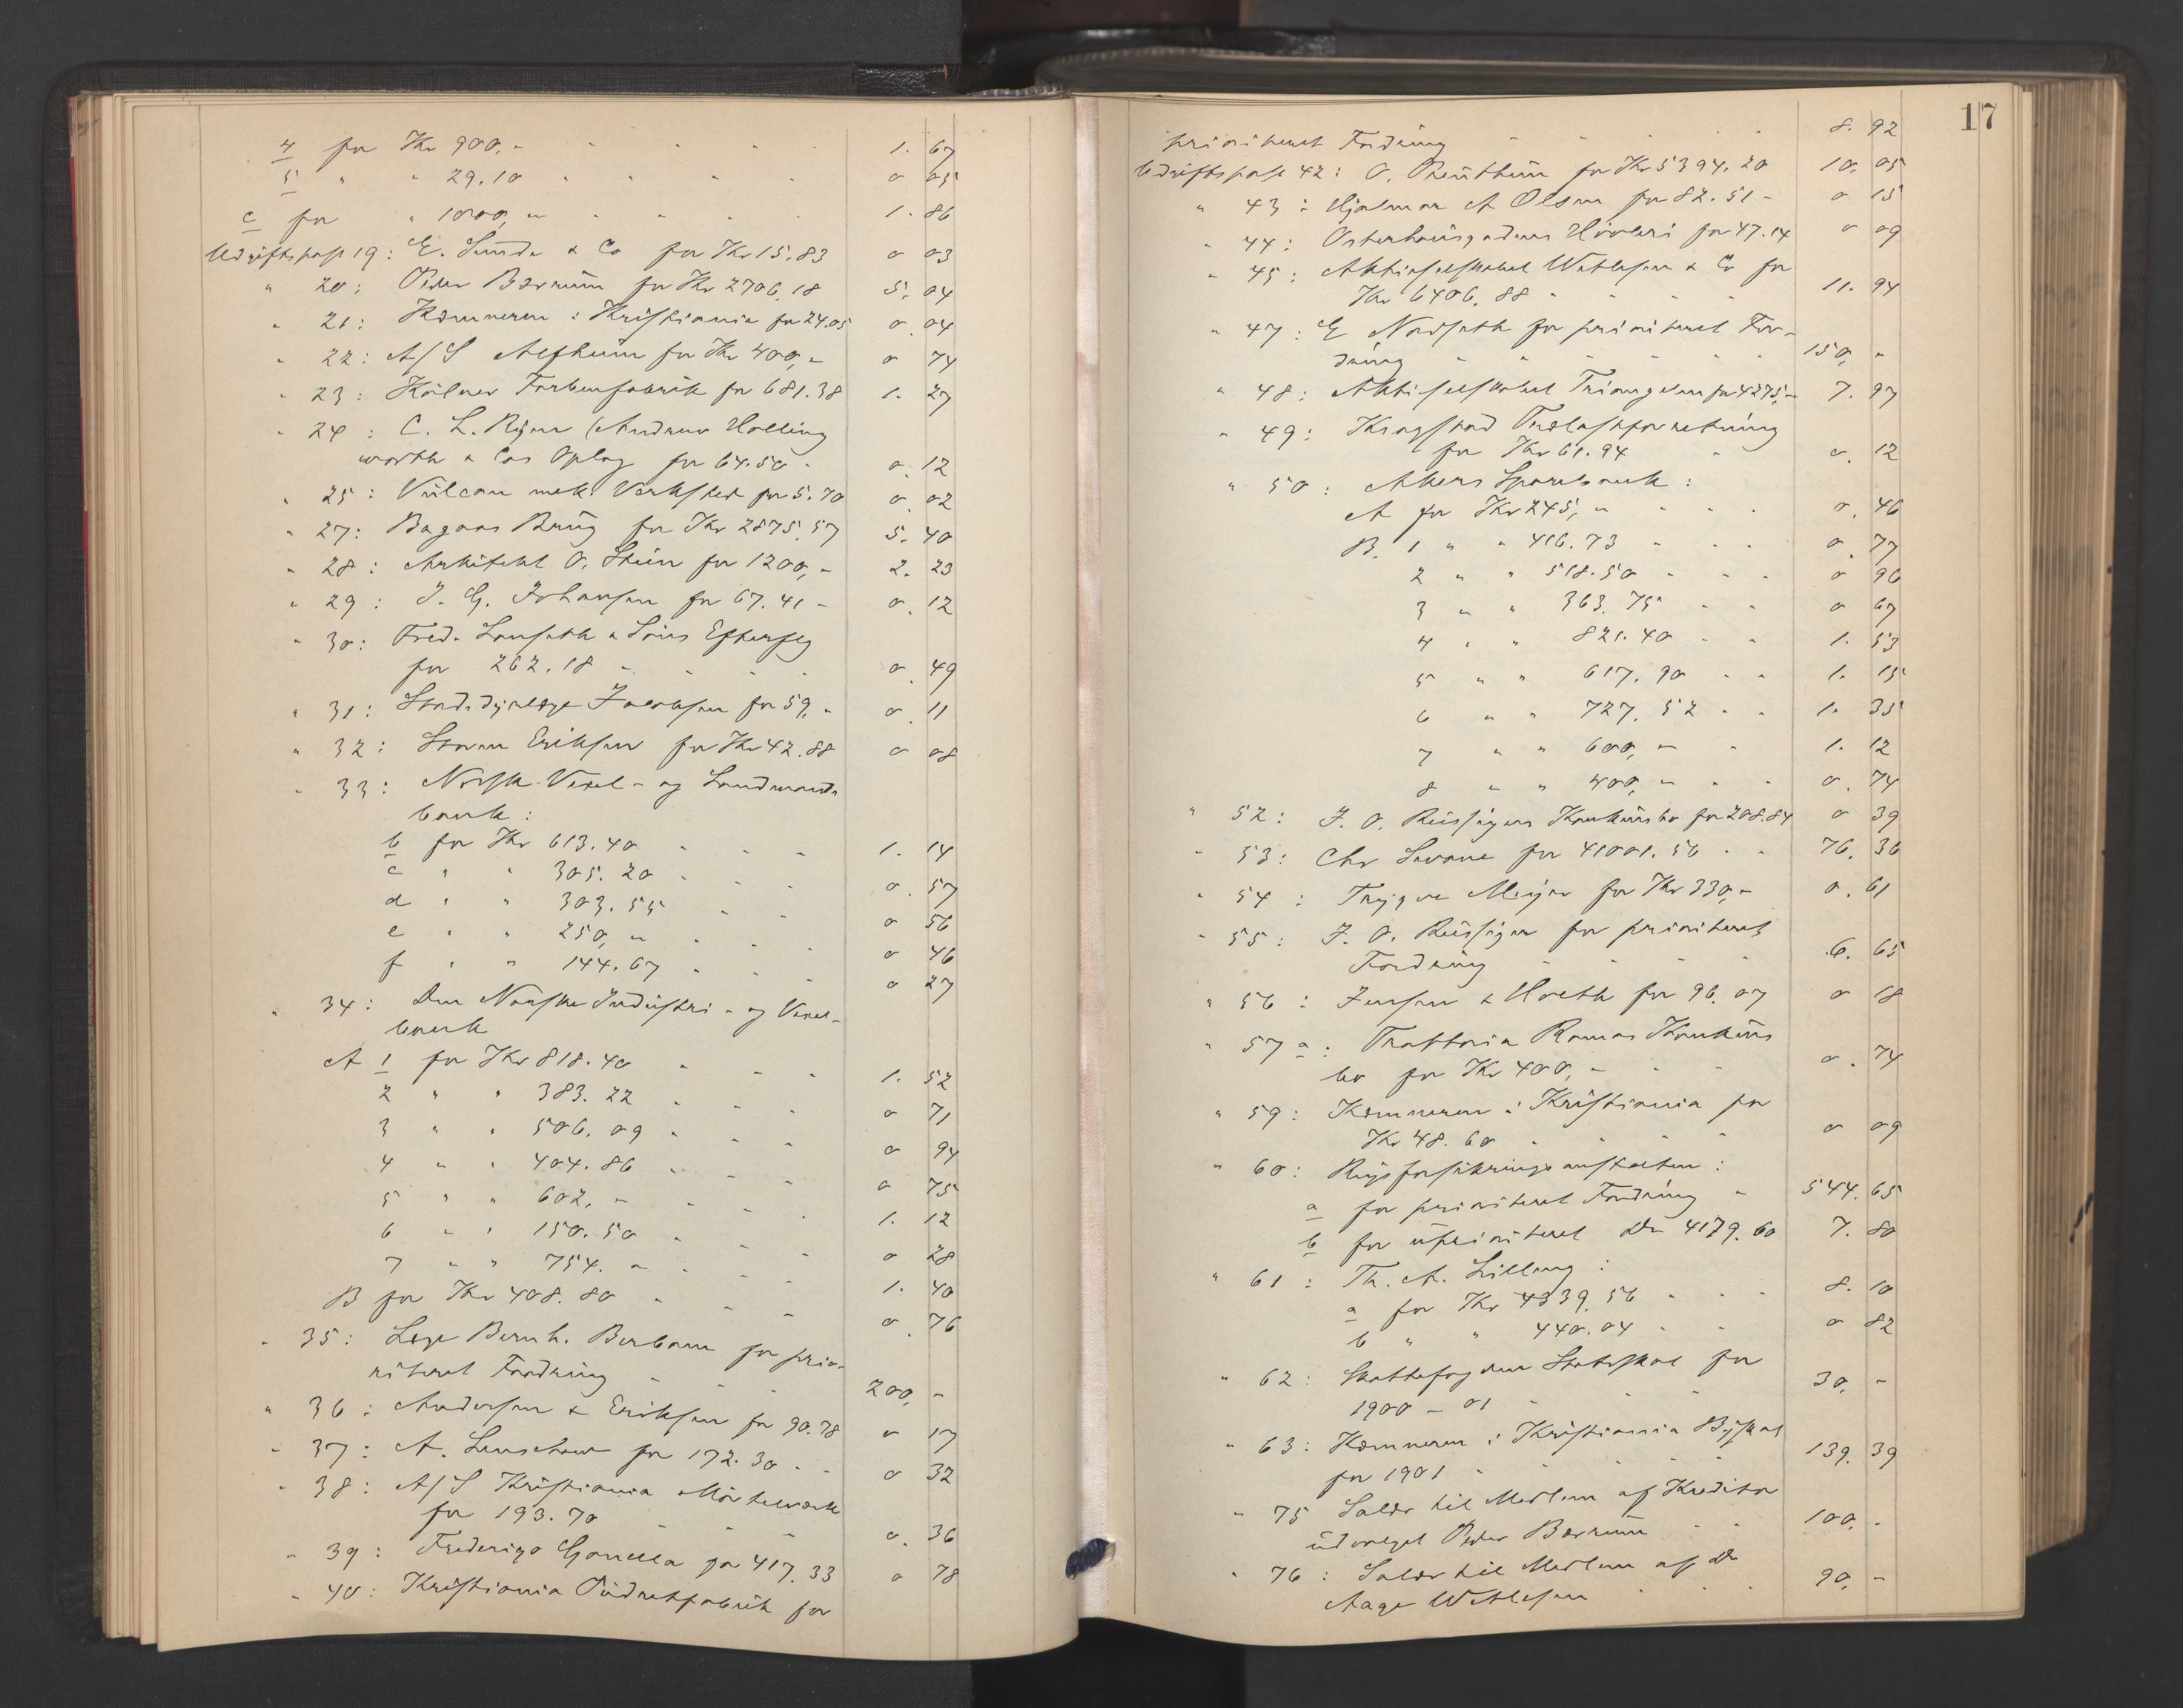 4 for Kr 900,- 1. 67
5 " " 29.10 0 05
c for " 1000,- 1. 86
Udgiftspost 19: E. Sunde & Co for Kr 15.83 0 03
" 20: Peder Bærrum for Kr 2706.18 5. 04
" 21: Kæmneren i Kristiania for 24.05 0. 04
" 22: A/S Alfheim for Kr 400,- 0 74
" 23: Kölner Farbenfabrik for 681.38 1. 27
" 24: C. L. Rijm (Andrew Holling
worth & Cos Oplag for 64.50 - 0. 12
" 25: Vulcan mek. Verksted for 5.70 0. 02
" 27: Bagaas Brug for Kr 2875.57 5. 40
" 28: Arkitekt O. Stein for 1200,- 2. 23
" 29: J. G. Johansen for 67.41 - 0. 12
" 30: Fred. Lanseth & Søns Efterflg
for 262.18 - 0. 49
" 31: Stadsdyrlæge Jacobsen for 59,- 0. 11
" 32: Storm Eriksen for Kr 42.88 0 08
" 33: Norsk Vexel- og Landmands
bank:
b for Kr 613.40 1. 14
c " " 305.20 0. 57
d " " 303.55 0 56
e " " 250,- 0 46
f " " 144.67 0 27
" 34: Den Norske Industri- og Vexel-
bank
A 1 for Kr 818.40 1. 52
2 " " 383.22 0 71
3 " " 506.09 0 94
4 " " 404.86 0 75
5 " " 602,- 1. 12
6 " " 150.50 0 28
7 " " 754.- 1. 40
B for Kr 408.80 0. 76
" 35: Læge Bernh. Berbom for prio-
riteret Fordring 200,-
" 36: Andersen & Eriksen for 90.78 0 17
" 37: A. Lenschow for 172.30 0 32
" 38: A/S Kristiania Mørtelværk
for 193.70 0. 36
" 39: Frederigo Gonella for 417.33 0 78
" 40: Kristiania Pudretfabrik for
17
prioriteret Fordring 8. 92
Udgiftspost 42: O. Bentheim for Kr 5394.20 10. 05
" 43: Hjalmar A Olsen for 82.51 - 0 15
" 44: Osterhausgadens Høvleri for 47.14 0 09
" 45: Aktieselskabet Wetlesen & Co for
Kr 6406.88 11. 94
" 47: E Nordseth for prioriteret For-
dring 150,-
" 48: Aktieselskabet Triangelen for 4275,- 7. 97
" 49: Kragstad Trælastforretning
for Kr 61.94 0. 12
" 50: Akers Sparebank:
A for Kr 245,- 0. 46
B. 1 " " 416.73 0. 77
2 " " 518.50 0 96
3 " " 363.75 0 67
4 " " 821.40 1. 53
5 " " 617.90 1. 15
6 " " 727.52 1. 35
7 " " 600,- 1. 12
8 " " 400,- 0. 74
" 52: J. O. Reissigers Konkursbo for 208.84 0 39
" 53: Chr Svane for 41001.56 76. 36
" 54: Trygve Meyer for Kr 330,- 0. 61
" 55: J. O. Reissiger for prioriteret
Fordring 6. 65
" 56: Jensen & Horth for 96.07 0 18
" 57 a: Trattoria Romas Konkurs
bo for Kr 400,- 0. 74
" 59: Kæmneren i Kristiania for
Kr 48.60 0 09
" 60: Rigsforsikringsanstalten:
a for prioriteret Fordring 544. 65
b for uprioriteret Do 4179.60 7. 80
" 61: Th. A. Lilling:
a for Kr 4339.56 8. 10
b " " 440.04 0 82
" 62: Skattefogdens Statsskat for
1900-01 30,-
" 63: Kæmneren i Kristiania Byskat
for 1901 139. 39
" 75 Salær til Medlem af Kreditor
udvalget Peder Bærrum 100,-
" 76: Salær til Medlem af Do
Aage Wetlesen 90,-